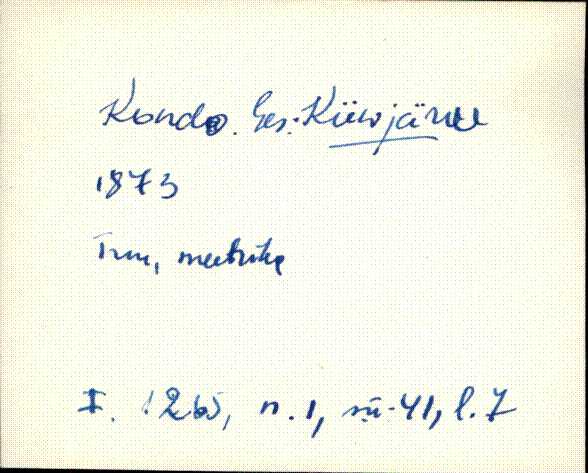 Kondo. Ges. Küwjärve
1873
Trm, meetrika
I. 1265, n. 1, sü. 41, l. 7